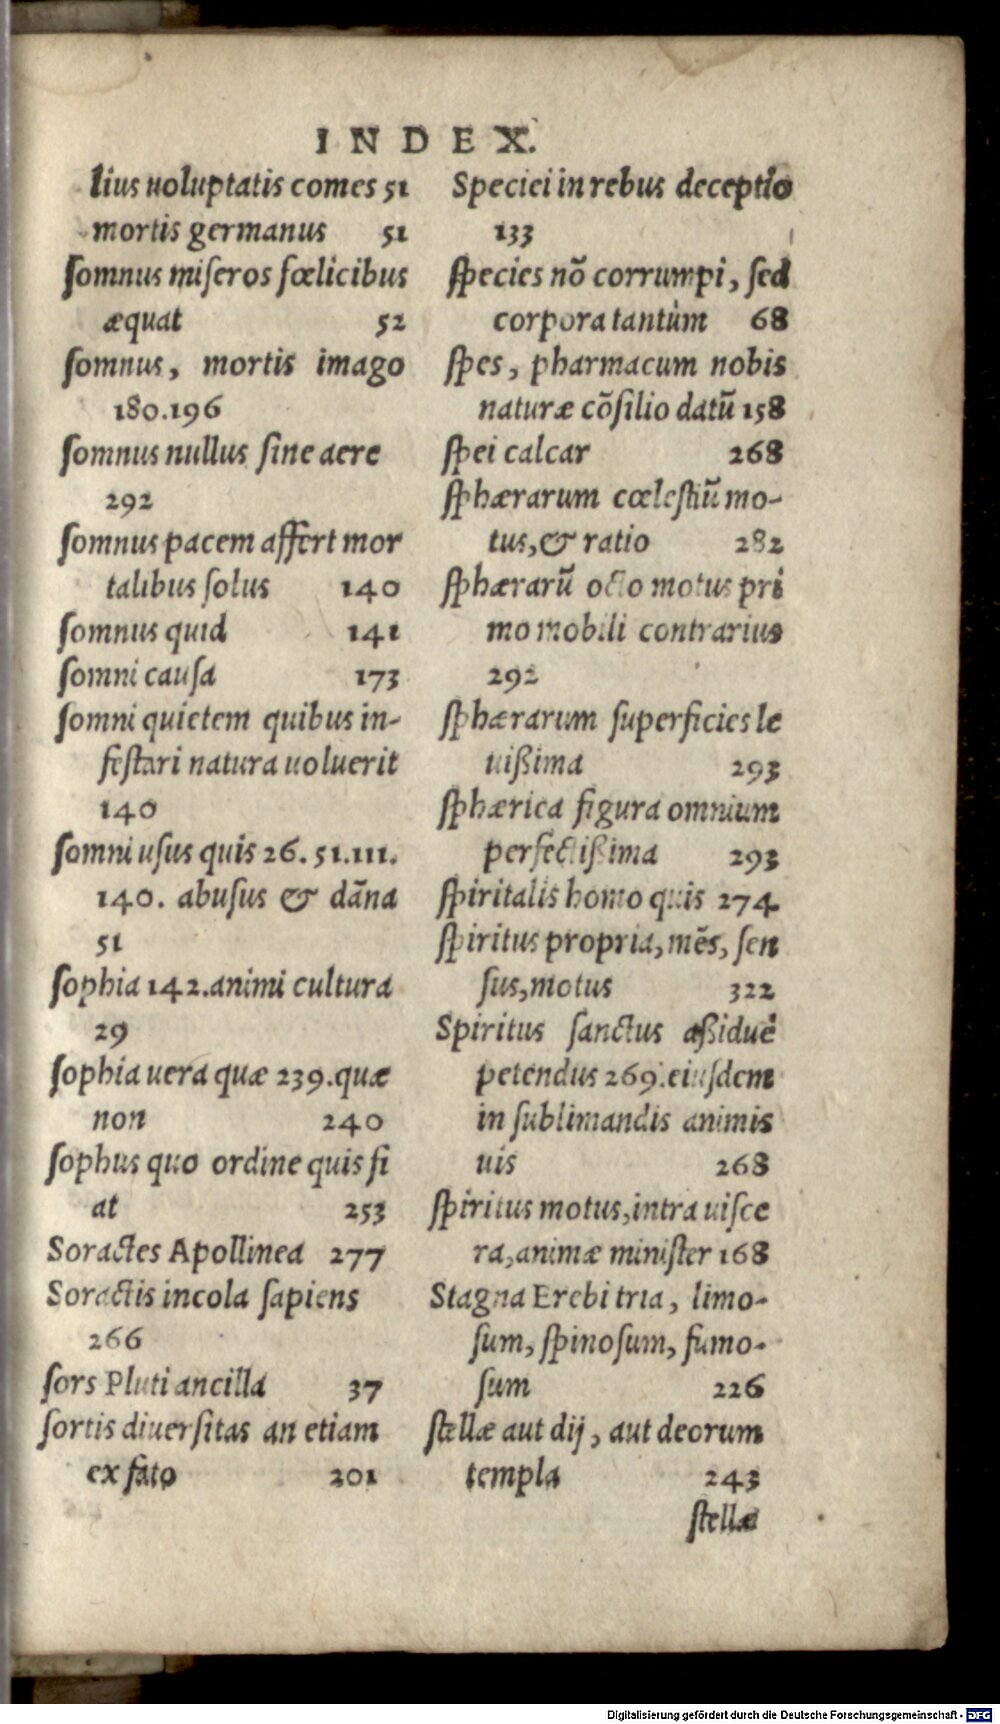 INDEX.
lius uoluptatis comes 51
mortis germanus 51
ſomnus miſeros fœlicibus
æquat 52
ſomnus, mortis imago
180.196
ſomnus nullus ſine aere
292
ſomnus pacem affert mor
talibus ſolus 140
ſomnus quid 141
ſomni cauſa 173
ſomni quietem quibus in-
feſtari natura uoluerit
140
ſomni uſus quis 26. 51.111.
140. abuſus & dāna
51
ſophia 142.animi cultura
29
ſophia uera quæ 239.quæ
non 240
ſophus quo ordine quis fi
at 253
Soractes Apollinea 277
Soractis incola ſapiens
266
ſors Pluti ancilla 37
ſortis diuerſitas an etiam
ex fato 201
Speciei in rebus deceptio
133
ſpecies nõ corrumpi, ſed
corpora tantùm 68
ſpes, pharmacum nobis
naturæ cõſilio datũ 158
ſpei calcar 268
ſphærarum cœleſtiũ mo-
tus,& ratio 282
ſphærarũ octo motus pri
mo mobili contrarius
292
ſphærarum ſuperficies le
uißima 293
ſphærica figura omnium
perfectißima 293
ſpiritalis homo quis 274
ſpiritus propria, mẽs, ſen
ſus,motus 322
Spiritus ſanctus aßiduè
petendus 269.eiuſdem
in ſublimandis animis
uis 268
ſpiritus motus,intra uiſce
ra,animæ miniſter 168
Stagna Erebi tria, limo-
ſum, ſpinoſum, fumo-
ſum 226
ſtellæ aut dij, aut deorum
templa 243
ſtellæ
Digitalisierung gefördert durch die Deutsche Forschungsgemeinschaft - DFG